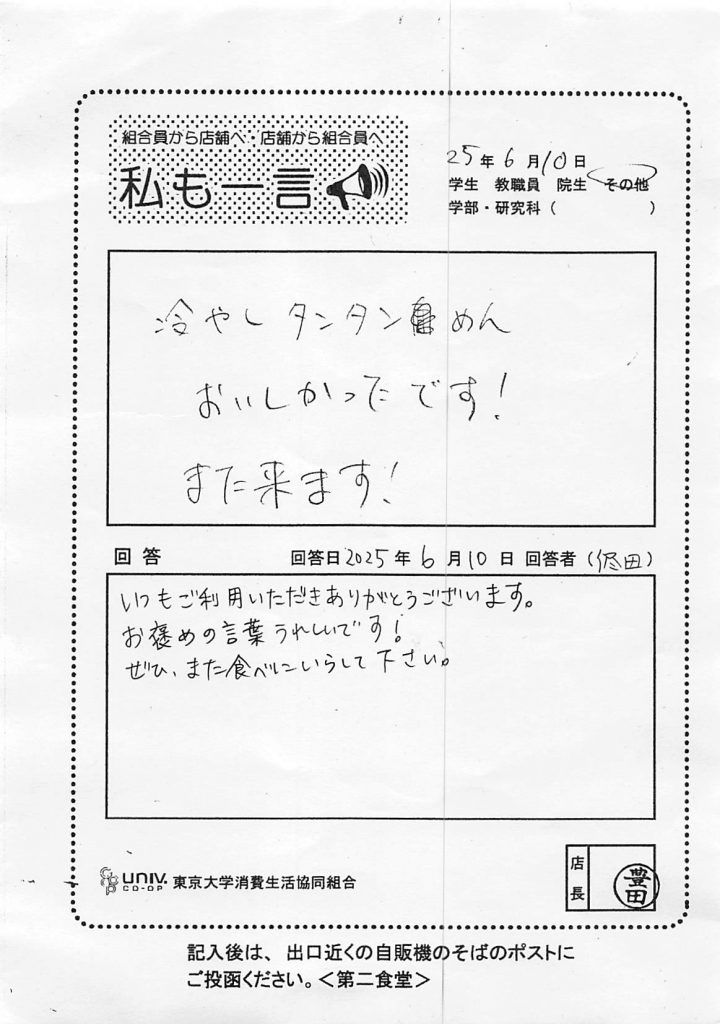 組合員から店舗へ・店舗から組合員へ
私も一言
25年6月10日
学生 教職員 院生 その他
学部・研究科（ ）
冷やしタンタンめん
おいしかったです！
また来ます！
回答 回答日2025年6月10日 回答者（田）
いつもご利用いただきありがとうございます。
お褒めの言葉うれしいです！
ぜひ、また食べにいらして下さい。
univ. CO-OP 東京大学消費生活協同組合
店長 豊田
記入後は、出口近くの自販機のそばのポストに
ご投函ください。＜第二食堂＞